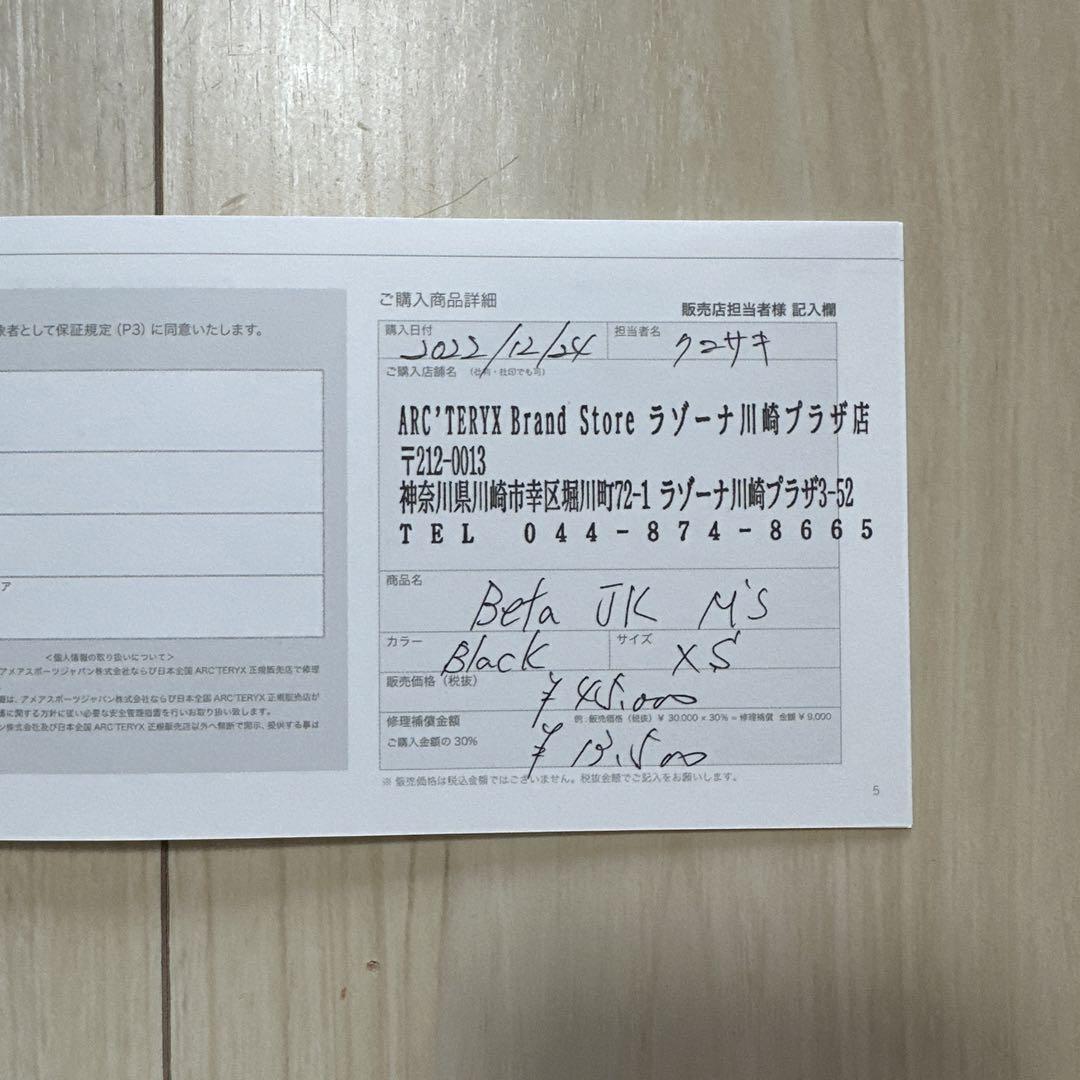 象者として保証規定（P3）に同意いたします。
ア
＜個人情報の取り扱いについて＞
アメアスポーツジャパン株式会社ならび日本全国 ARC'TERYX 正規販売店で修理
報は、アメアスポーツジャパン株式会社ならび日本全国 ARC'TERYX 正規販売店が
護に関する方針に従い必要な安全管理措置を行いお取り扱い致します。
ン株式会社及び日本全国 ARC'TERYX 正規販売店以外へ無断で開示、提供する事は
ご購入商品詳細
販売店担当者様 記入欄
購入日付 2022/12/24 担当者名 クロサキ
ご購入店舗名 （社判・社印でも可）
ARC'TERYX Brand Store ラゾーナ川崎プラザ店
〒212-0013
神奈川県川崎市幸区堀川町72-1 ラゾーナ川崎プラザ3-52
TEL 044-874-8665
商品名 Beta JK M's
カラー Black サイズ XS
販売価格（税抜） ¥45.000
修理補償金額 例：販売価格（税抜）¥ 30.000 × 30% = 修理補償 金額 ¥ 9,000
ご購入金額の 30% ¥13.500
※ 販売価格は税込金額ではございません。税抜金額でご記入をお願いします。
5